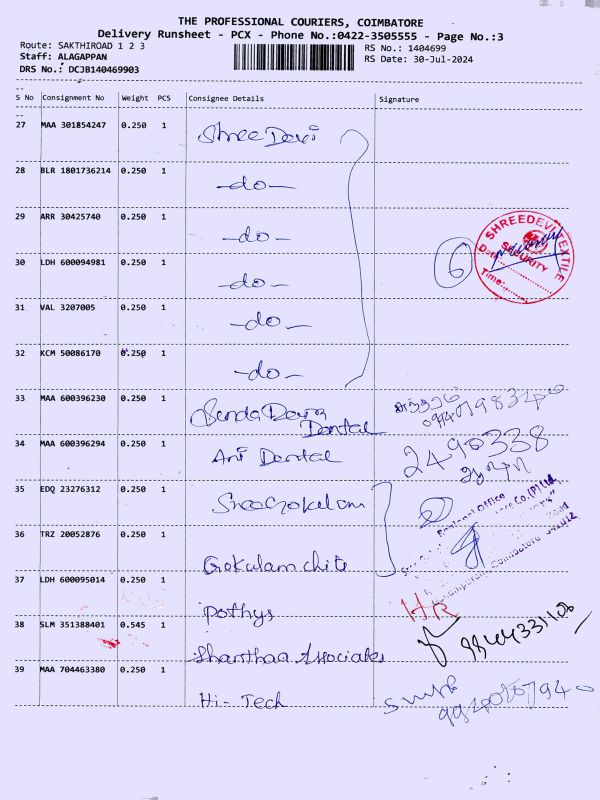 THE PROFESSIONAL COURIERS, COIMBATORE
Delivery Runsheet - PCX - Phone No.:0422-3505555 - Page No.:3
Route: SAKTHIROAD 1 2 3
RS No.: 1404699
Staff: ALAGAPPAN
RS Date: 30-Jul-2024
DRS No.: DCJB140469903
S No Consignment No Weight PCS Consignee Details Signature
27 MAA 301854247 0.250 1 Shree Devi
28 BLR 1801736214 0.250 1 -do-
29 ARR 30425740 0.250 1 -do-
SHREEDEVI TEXTILE
SECURITY
Date:
Time:
6
30 LDH 600094981 0.250 1 -do-
31 VAL 3207005 0.250 1 -do-
32 KCM 50086170 0.250 1 -do-
33 MAA 600396230 0.250 1 Dental
34 MAA 600396294 0.250 1 Ani Dental 2490338
35 EDQ 23276312 0.250 1 Sree Gokulam
Regional Office
Co.(P) Ltd.
Road
Coimbatore-641012
36 TRZ 20052876 0.250 1 Gokulam chits
37 LDH 600095014 0.250 1 Pothys HR
38 SLM 351388401 0.545 1 Shanthaa Associates
39 MAA 704463380 0.250 1 Hi-Tech